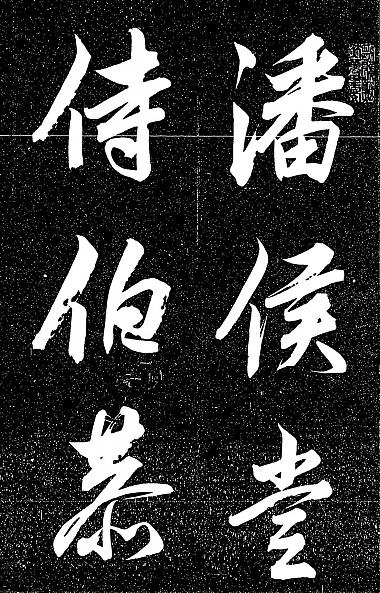 潘侯
侍伯恭